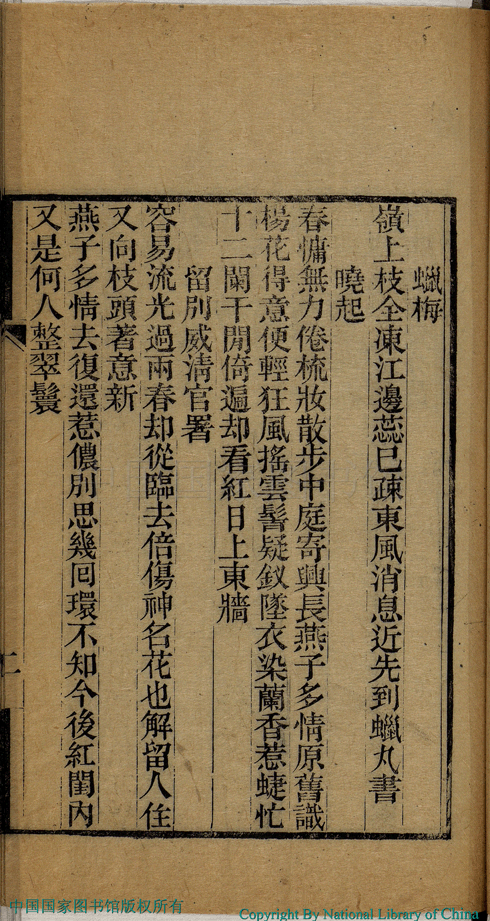 蠟梅
嶺上枝全凍江邊蕊已疎東風消息近先到蠟丸書
曉起
春慵無力倦梳妝散步中庭寄興長燕子多情原舊識
楊花得意便輕狂風搖雲髻疑釵墜衣染蘭香惹蜨忙
十二闌干閒倚遍却看紅日上東牆
留別威清官署
容易流光過兩春却從臨去倍傷神名花也解留人住
又向枝頭著意新
燕子多情去復還惹儂別思幾回環不知今後紅閨內
又是何人整翠鬟
二
中国国家图书馆版权所有
Copyright By National Library of China